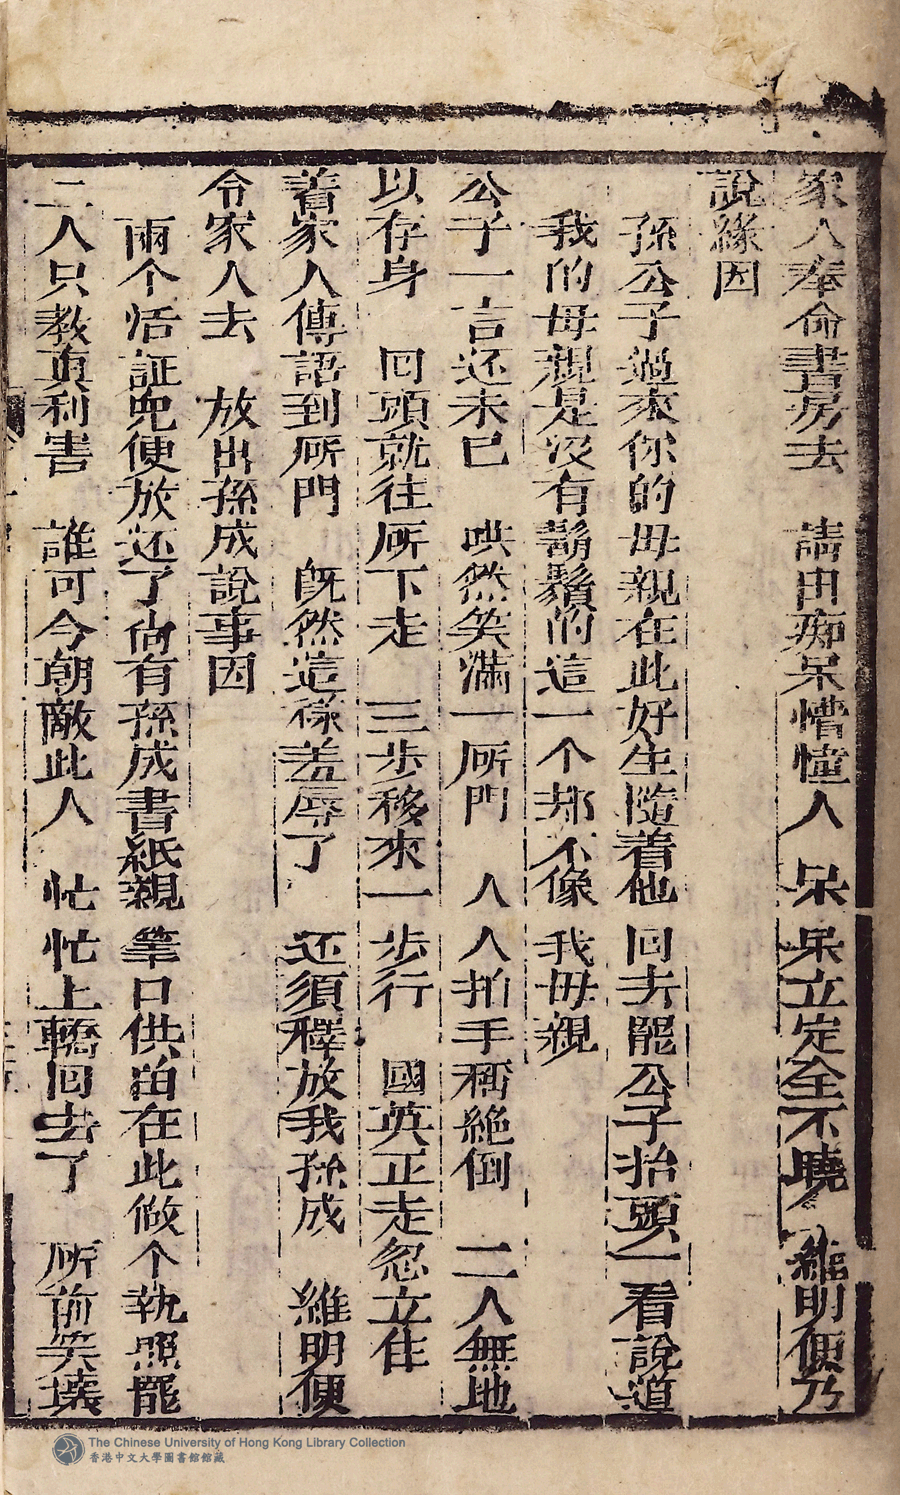 家人奉命書房去　請出痴呆懵憧人　呆呆立定全不曉　維明便乃
說緣因
孫公子過來你的母親在此好生隨着他回去罷公子抬頭一看說道
我的母親是沒有鬍鬚的這一个却不像我母親
公子一言还未已　哄然笑滿一所門　人人拍手称絶倒　二人無地
以存身　回頭就往所下走　三步移來一步行　國英正走忽立住
着家人傳語到所門　既然這樣羞辱了　还須釋放我孫成　維明便
令家人去　放出孫成說事因
兩个活証児便放还了尚有孫成書紙親筆口供留在此做个執照罷
二人只教真利害　誰可今朝敵此人　忙忙上轎回去了　所前笑壞
The Chinese University of Hong Kong Library Collection
香港中文大學圖書館館藏